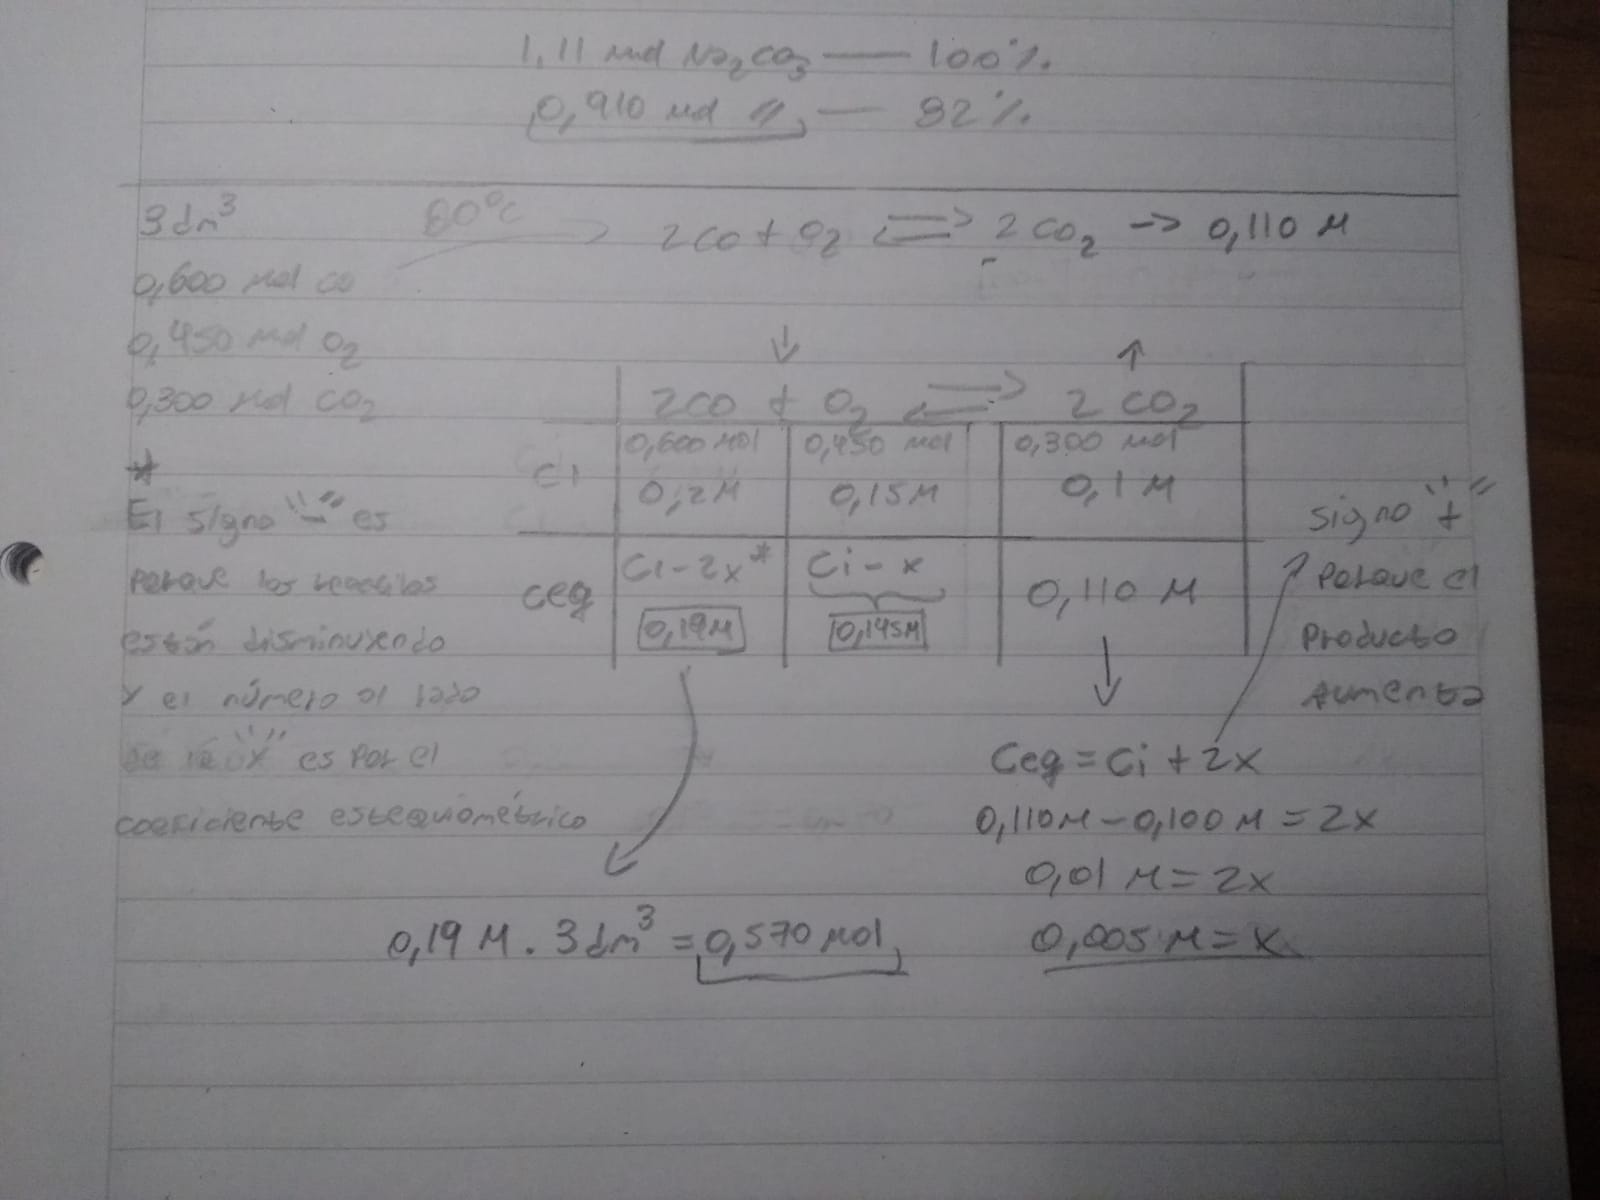 1,11 mol Na₂CO₃ — 100%
0,910 mol " — 82%
3 dm³
80°C
2CO + O₂ ⇌ 2CO₂ → 0,110 M
0,600 mol CO
0,450 mol O₂
0,300 mol CO₂
↓ ↑
2CO + O₂ ⇌ 2CO₂
Ci
0,600 mol 0,450 mol 0,300 mol
0,2M 0,15M 0,1M
Ceq
Ci-2x* Ci-x 0,110 M
0,19M 0,145M
*
El signo "-" es
porque los reactivos
están disminuyendo
y el número al lado
de la "x" es por el
coeficiente estequiométrico
signo "+"
porque el
producto
aumenta
Ceq = Ci + 2x
0,110M - 0,100M = 2x
0,01 M = 2x
0,005 M = x
0,19 M . 3 dm³ = 0,570 mol